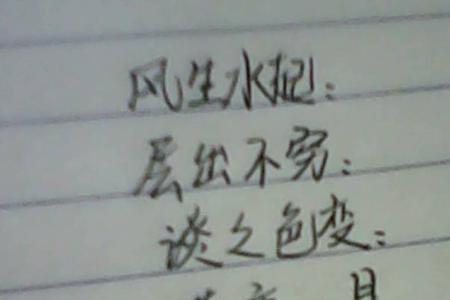 风生水起：
层出不穷：
谈之色变：